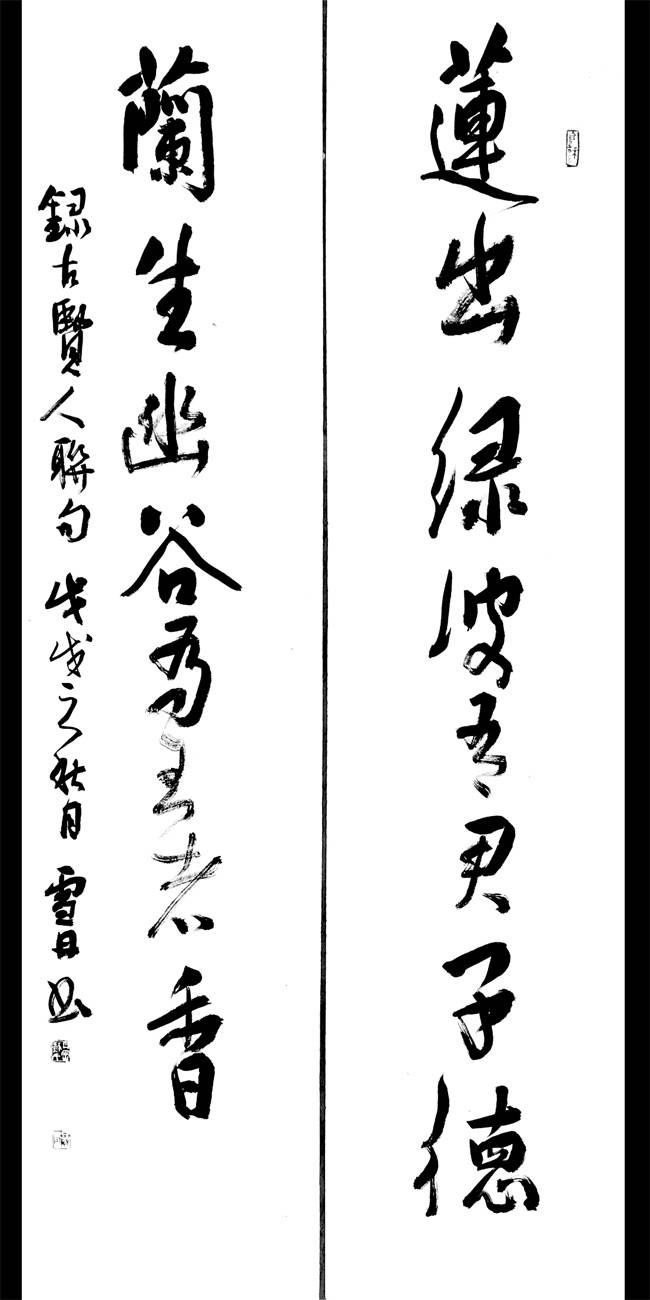 蓮出绿波吾君子德
蘭生幽谷為王者香
録古賢人聯句 戊戌之秋月 雪日书